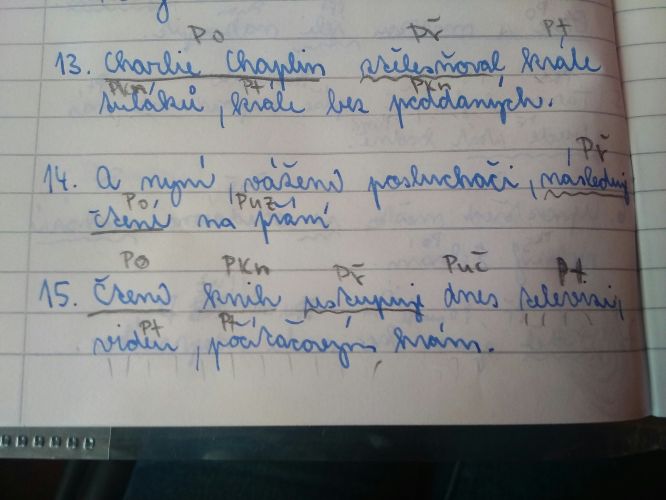 Po Př Pt
13. Charlie Chaplin ztělesňoval krále
Pkn Pt Pkn
tuláků, krále bez poddaných.
Př
14. A nyní, vážení posluchači, následuje
Po Puz
čtení na přání
Po Pkn Př Puč Pt
15. Čtení knih ustupuje dnes televizi,
Pt Pt
videu, počítačovým hrám.